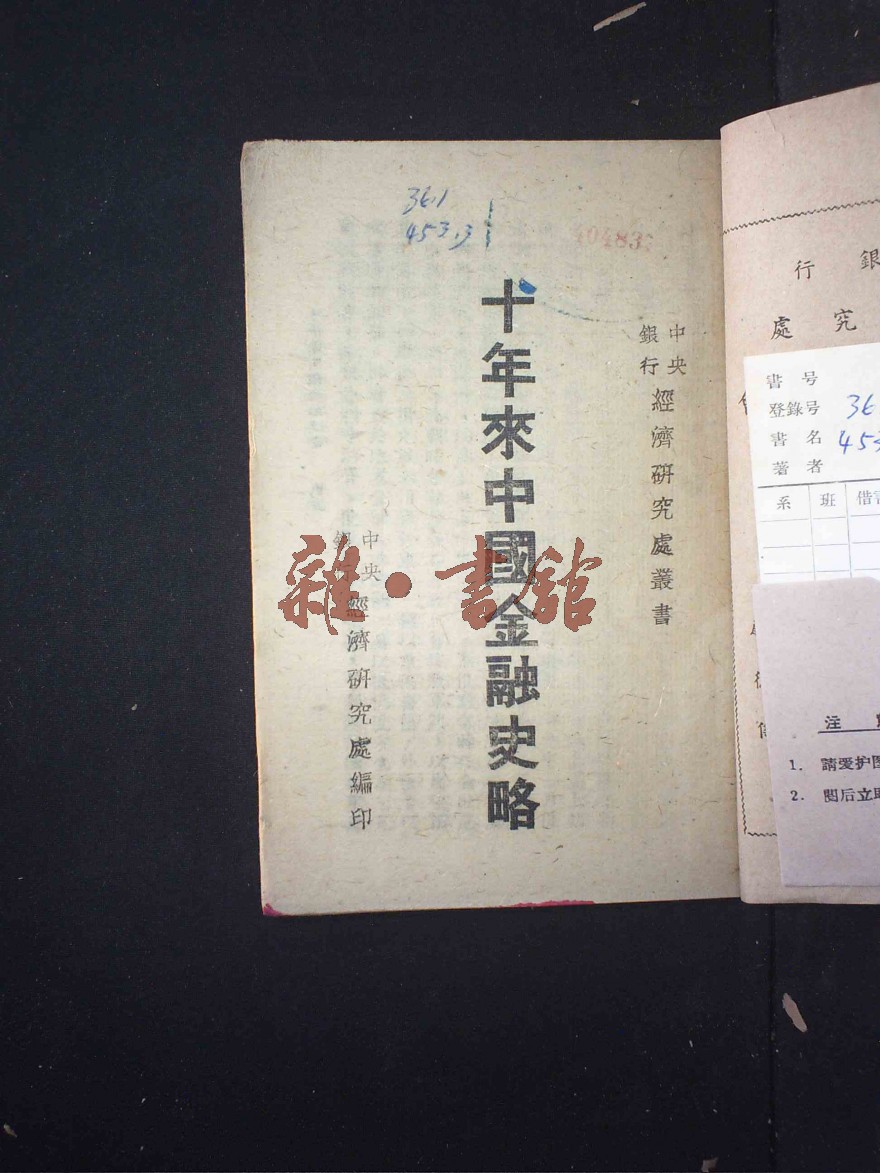 361
453.3
中央
銀行
經濟研究處叢書
十年來中國金融史略
中央
銀行
經濟研究處編印
雜·書館
銀
行
究
處
書号
登錄号
36
書名
453
著者
系 班 借書
注
1. 請爱护图
2. 閱后立即